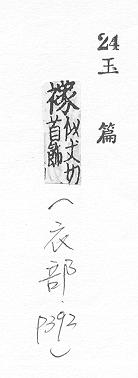 24
玉篇
襐 似丈切
首飾
(衣部.
P392)